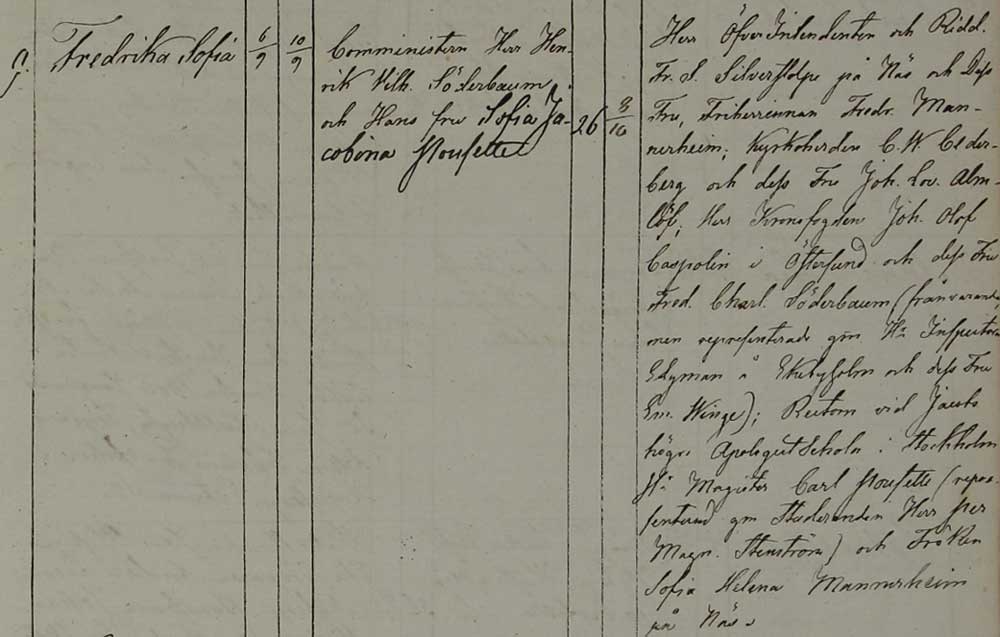 g.
Fredrika Sofia
6/9
10/9
Comministern Herr Hen-
rik Vilh. Söderbaum
och Hans fru Sofia Ja-
cobina Noufette
26
8/10
Herr ÖfverIntendenten och Ridd.
Fr. S. Silverstolpe på Näs och Dess
Fru, Friherrinnan Fredr. Man-
nerheim; Kyrkoherden C. W. Ceder-
berg och dess Fru Joh. Lov. Alm-
löf; Herr Kronofogden Joh. Olof
Caspolin i Östersund och dess Fru
Fred. Charl. Söderbaum (frånvarande,
men representerade gm Hr Inspectorn
Edgman å Ekebyholm och dess Fru
Em. Winge); Rectorn vid Jacobs
högre Apologist Schola i Stockholm
Hr Magister Carl Noufette (repre-
senterad gm Studeranden Herr Per
Magn. Stenström) och Fröken
Sofia Helena Mannerheim
på Näs.